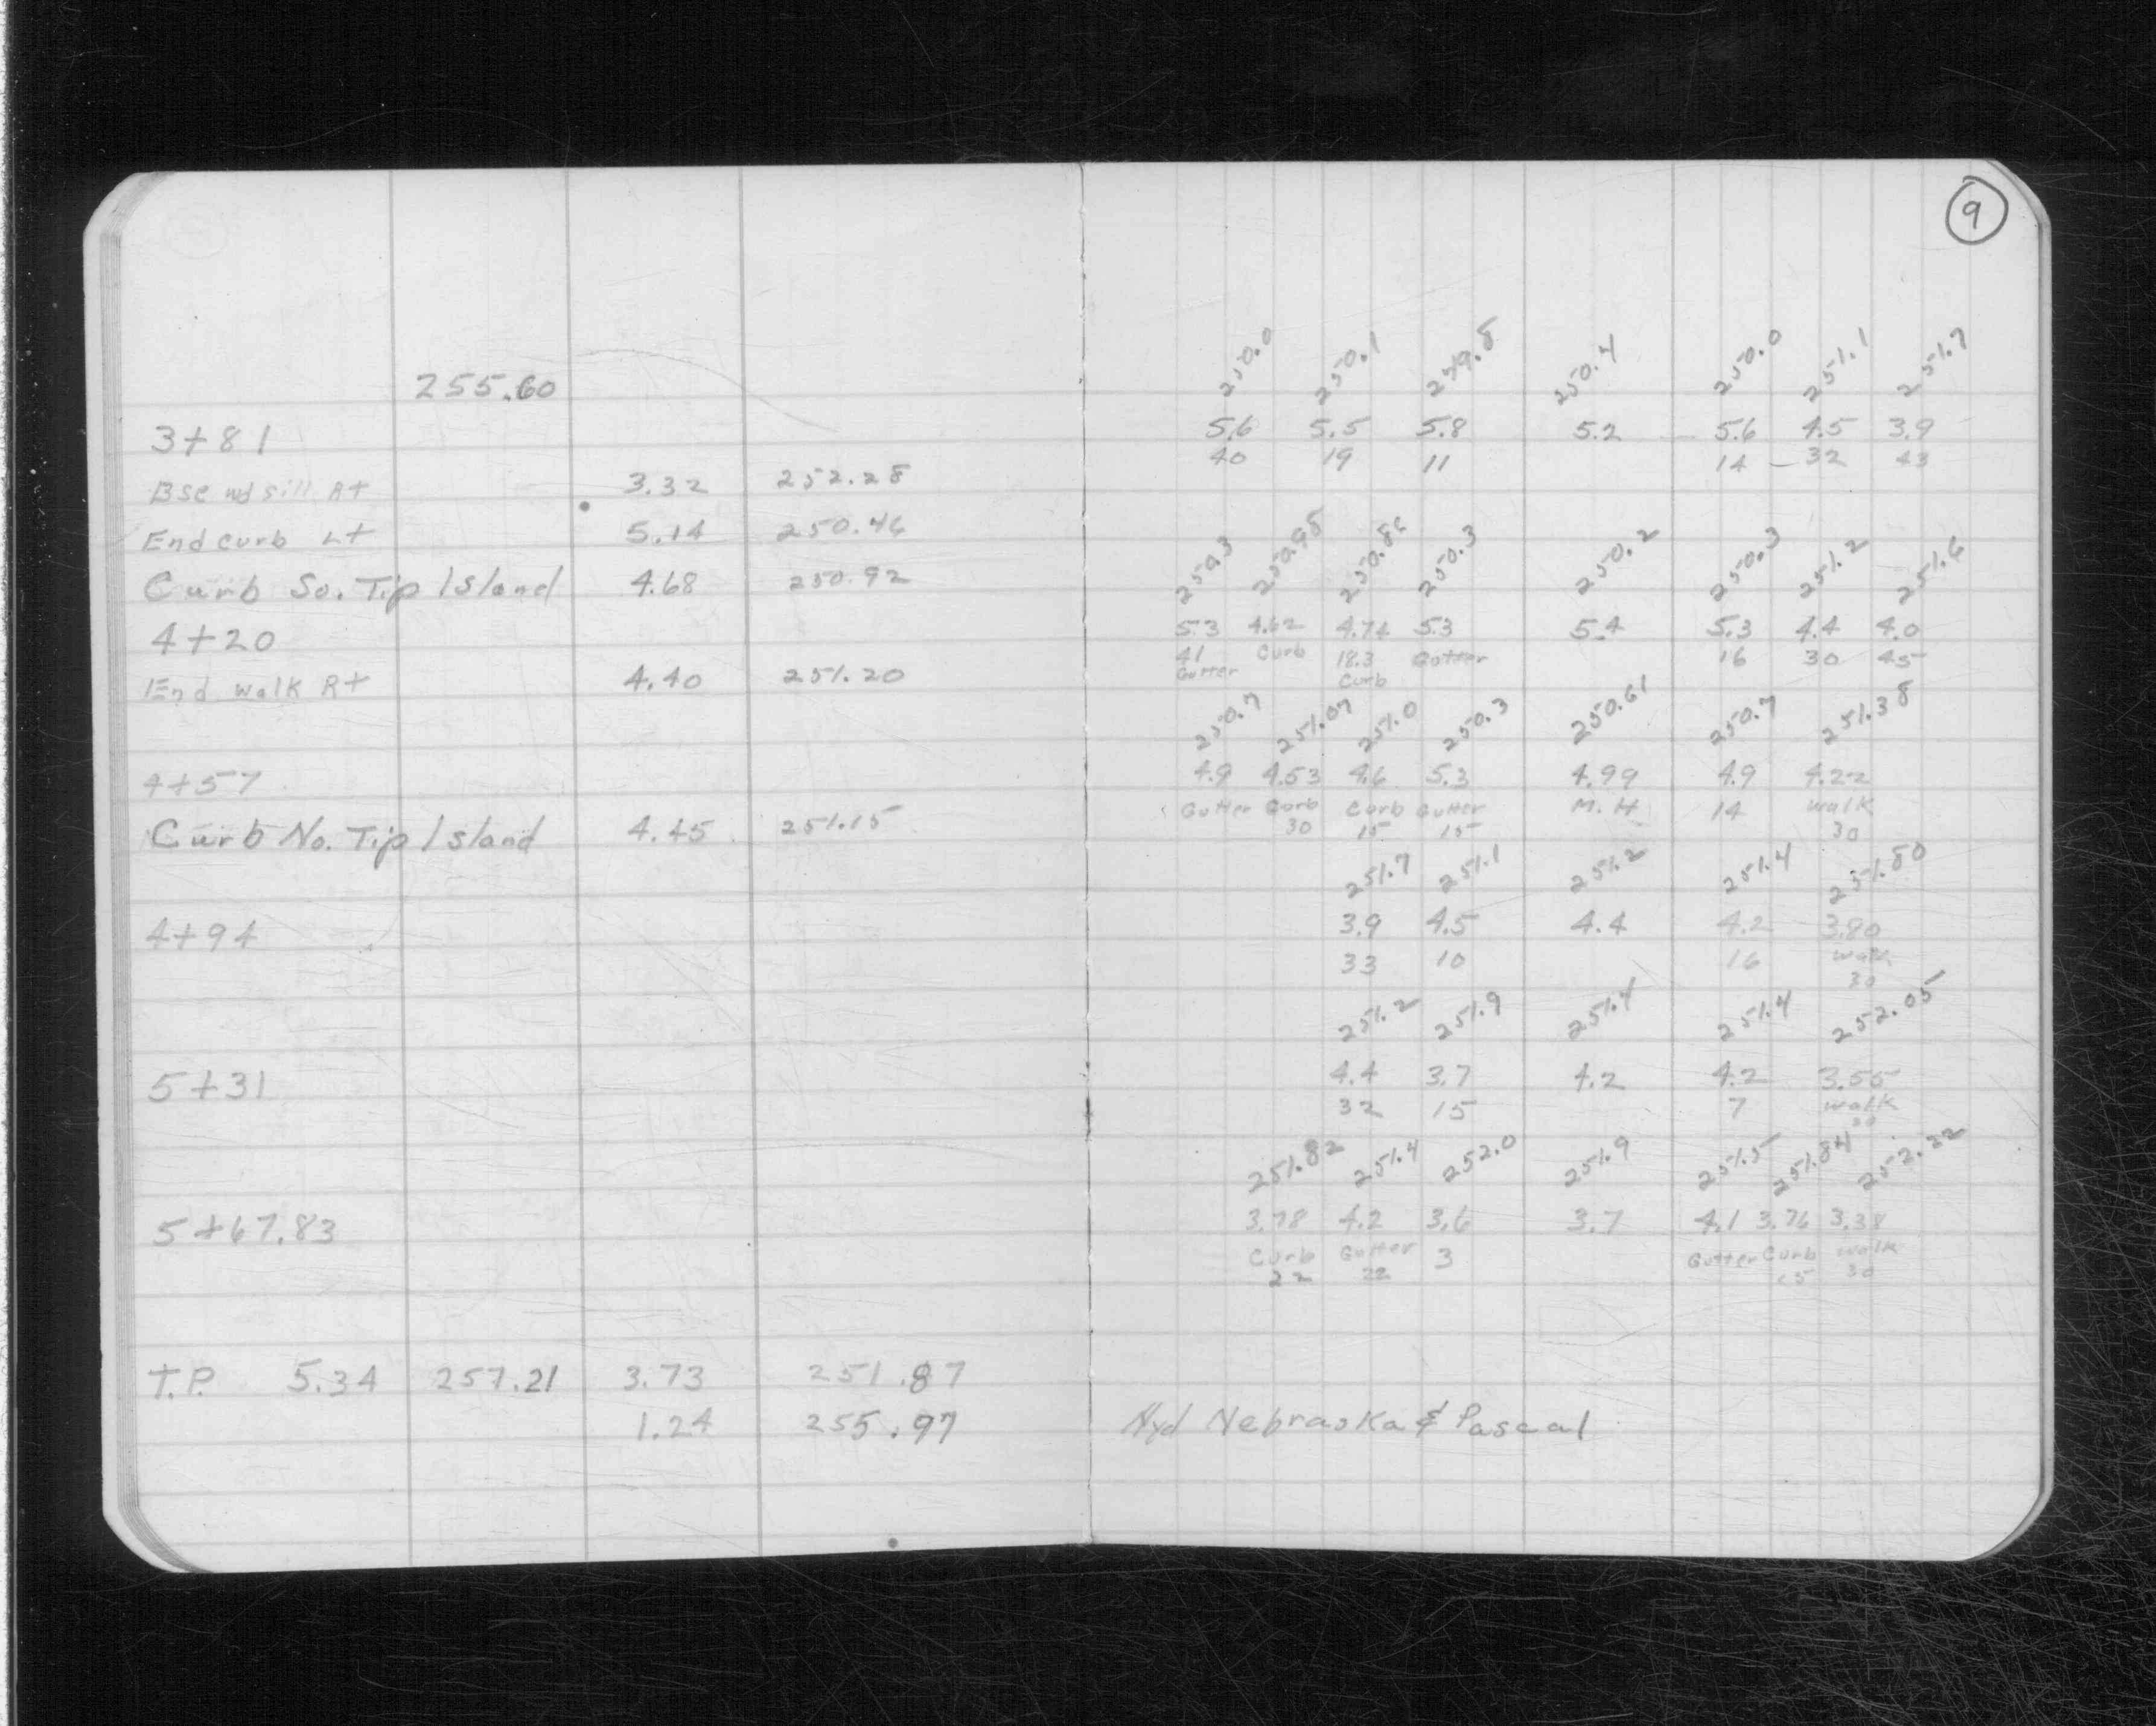 9
255.60
250.0 250.1 249.8 250.4 250.0 251.1 251.7
3+81 5.6 5.5 5.8 5.2 5.6 4.5 3.9
40 19 11 14 32 43
Bse wd sill Rt 3.32 252.28
End curb Lt 5.14 250.46
250.3 250.98 250.86 250.3 250.2 250.3 251.2 251.6
Curb So. Tip Island 4.68 250.92
4+20 5.3 4.62 4.74 5.3 5.4 5.3 4.4 4.0
41 Curb 18.3 Gutter 16 30 45
Gutter Curb
End walk Rt 4.40 251.20
250.7 251.07 251.0 250.3 250.61 250.7 251.38
4+57 4.9 4.53 4.6 5.3 4.99 4.9 4.22
Gutter Curb Curb Gutter M.H 14 walk
30 15 15 30
Curb No. Tip Island 4.45 251.15
251.7 251.1 251.2 251.4 251.80
4+94 3.9 4.5 4.4 4.2 3.80
33 10 16 walk
30
251.2 251.9 251.4 251.4 252.05
5+31 4.4 3.7 4.2 4.2 3.55
32 15 7 walk
30
251.82 251.4 252.0 251.9 251.5 251.84 252.22
5+67.83 3.78 4.2 3.6 3.7 4.1 3.76 3.38
Curb Gutter 3 Gutter Curb walk
22 22 15 30
T.P. 5.34 257.21 3.73 251.87
1.24 255.97 Hyd Nebraska & Pascal